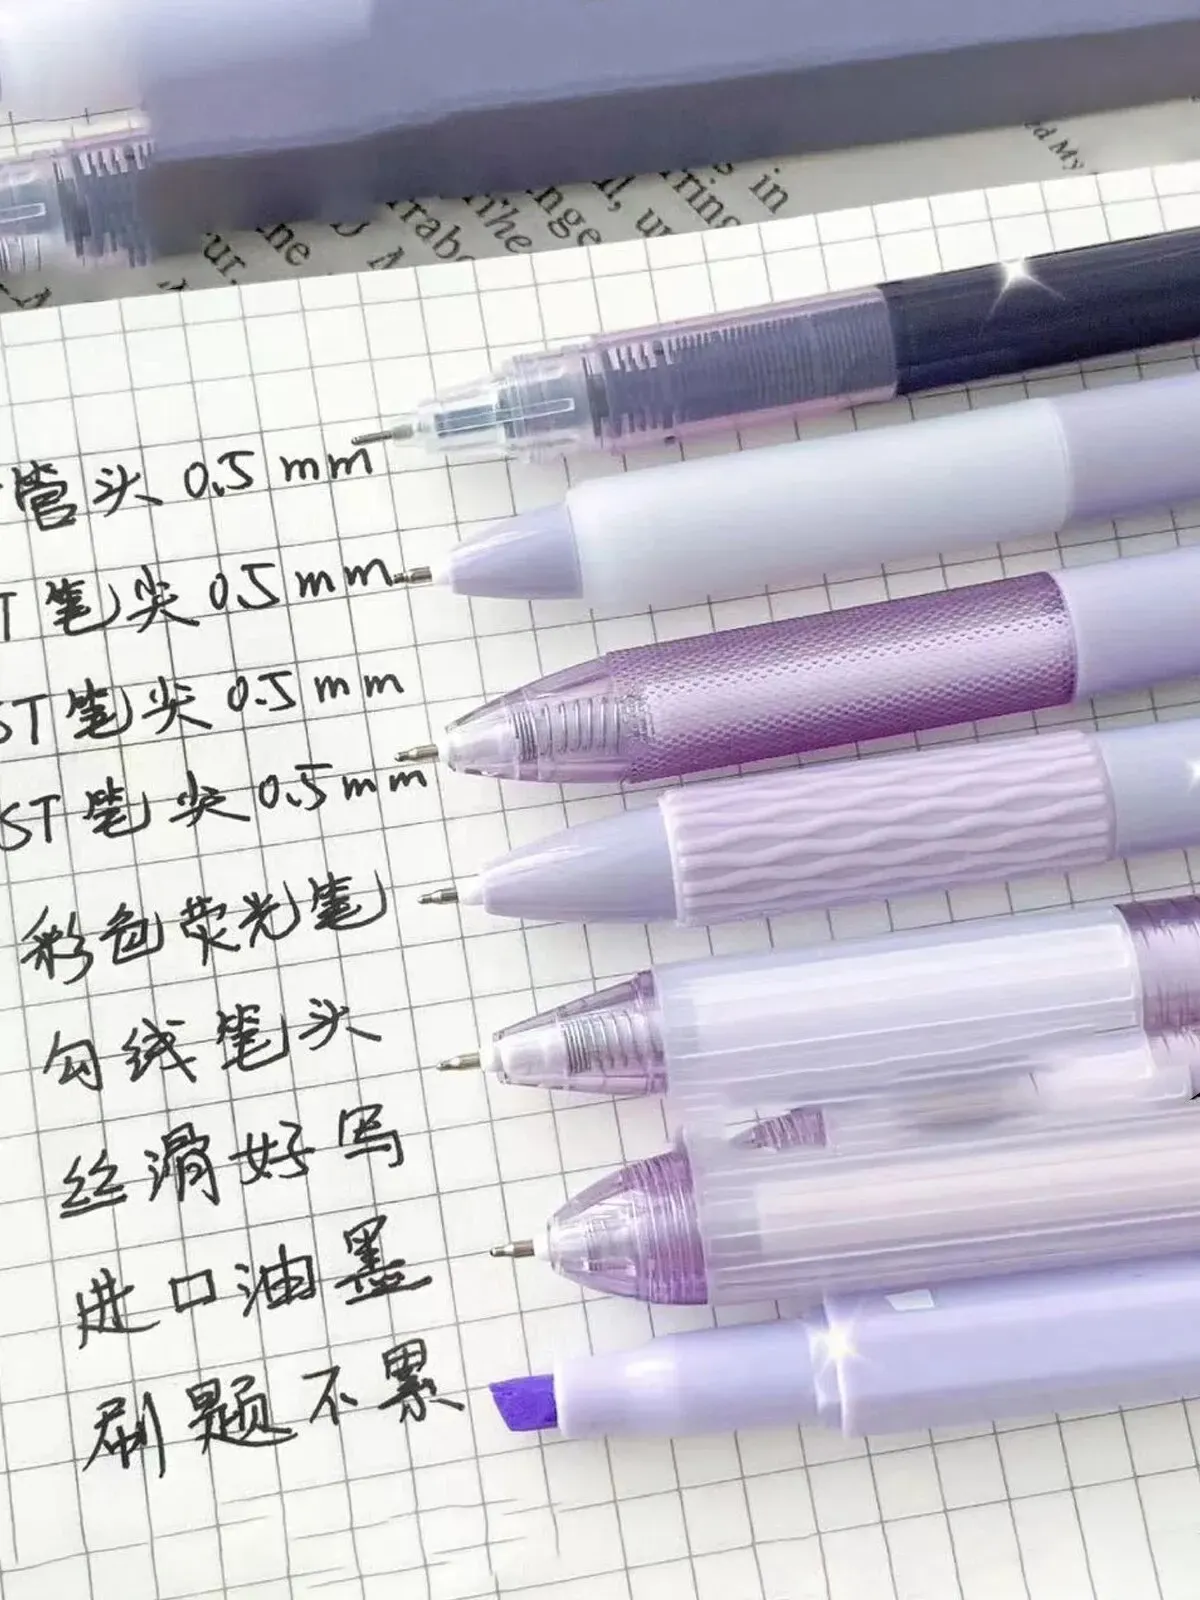 in
ed My
管头 0.5mm
T笔尖 0.5mm
ST笔尖 0.5mm
ST笔尖 0.5mm
彩色荧光笔
勾线笔头
丝滑好写
进口油墨
刷题不累